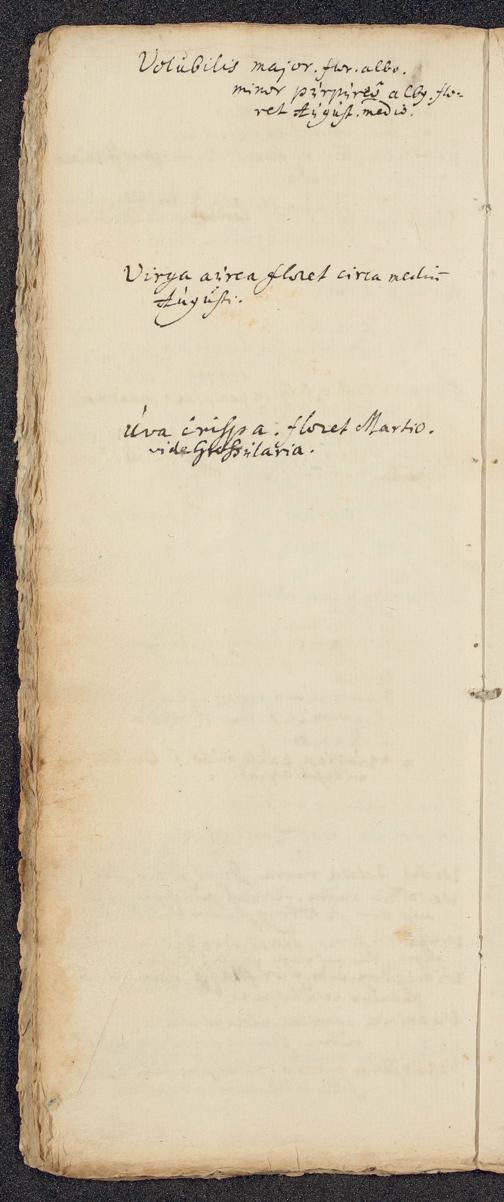 Volubilis major. flor. albo.
minor púrpúreó albo. flo-
ret Aúgúst. medio.
Virga aúrea floret circa mediū
Aúgústi.
Úva crispa. floret Martio.
vide Grossúlaria.